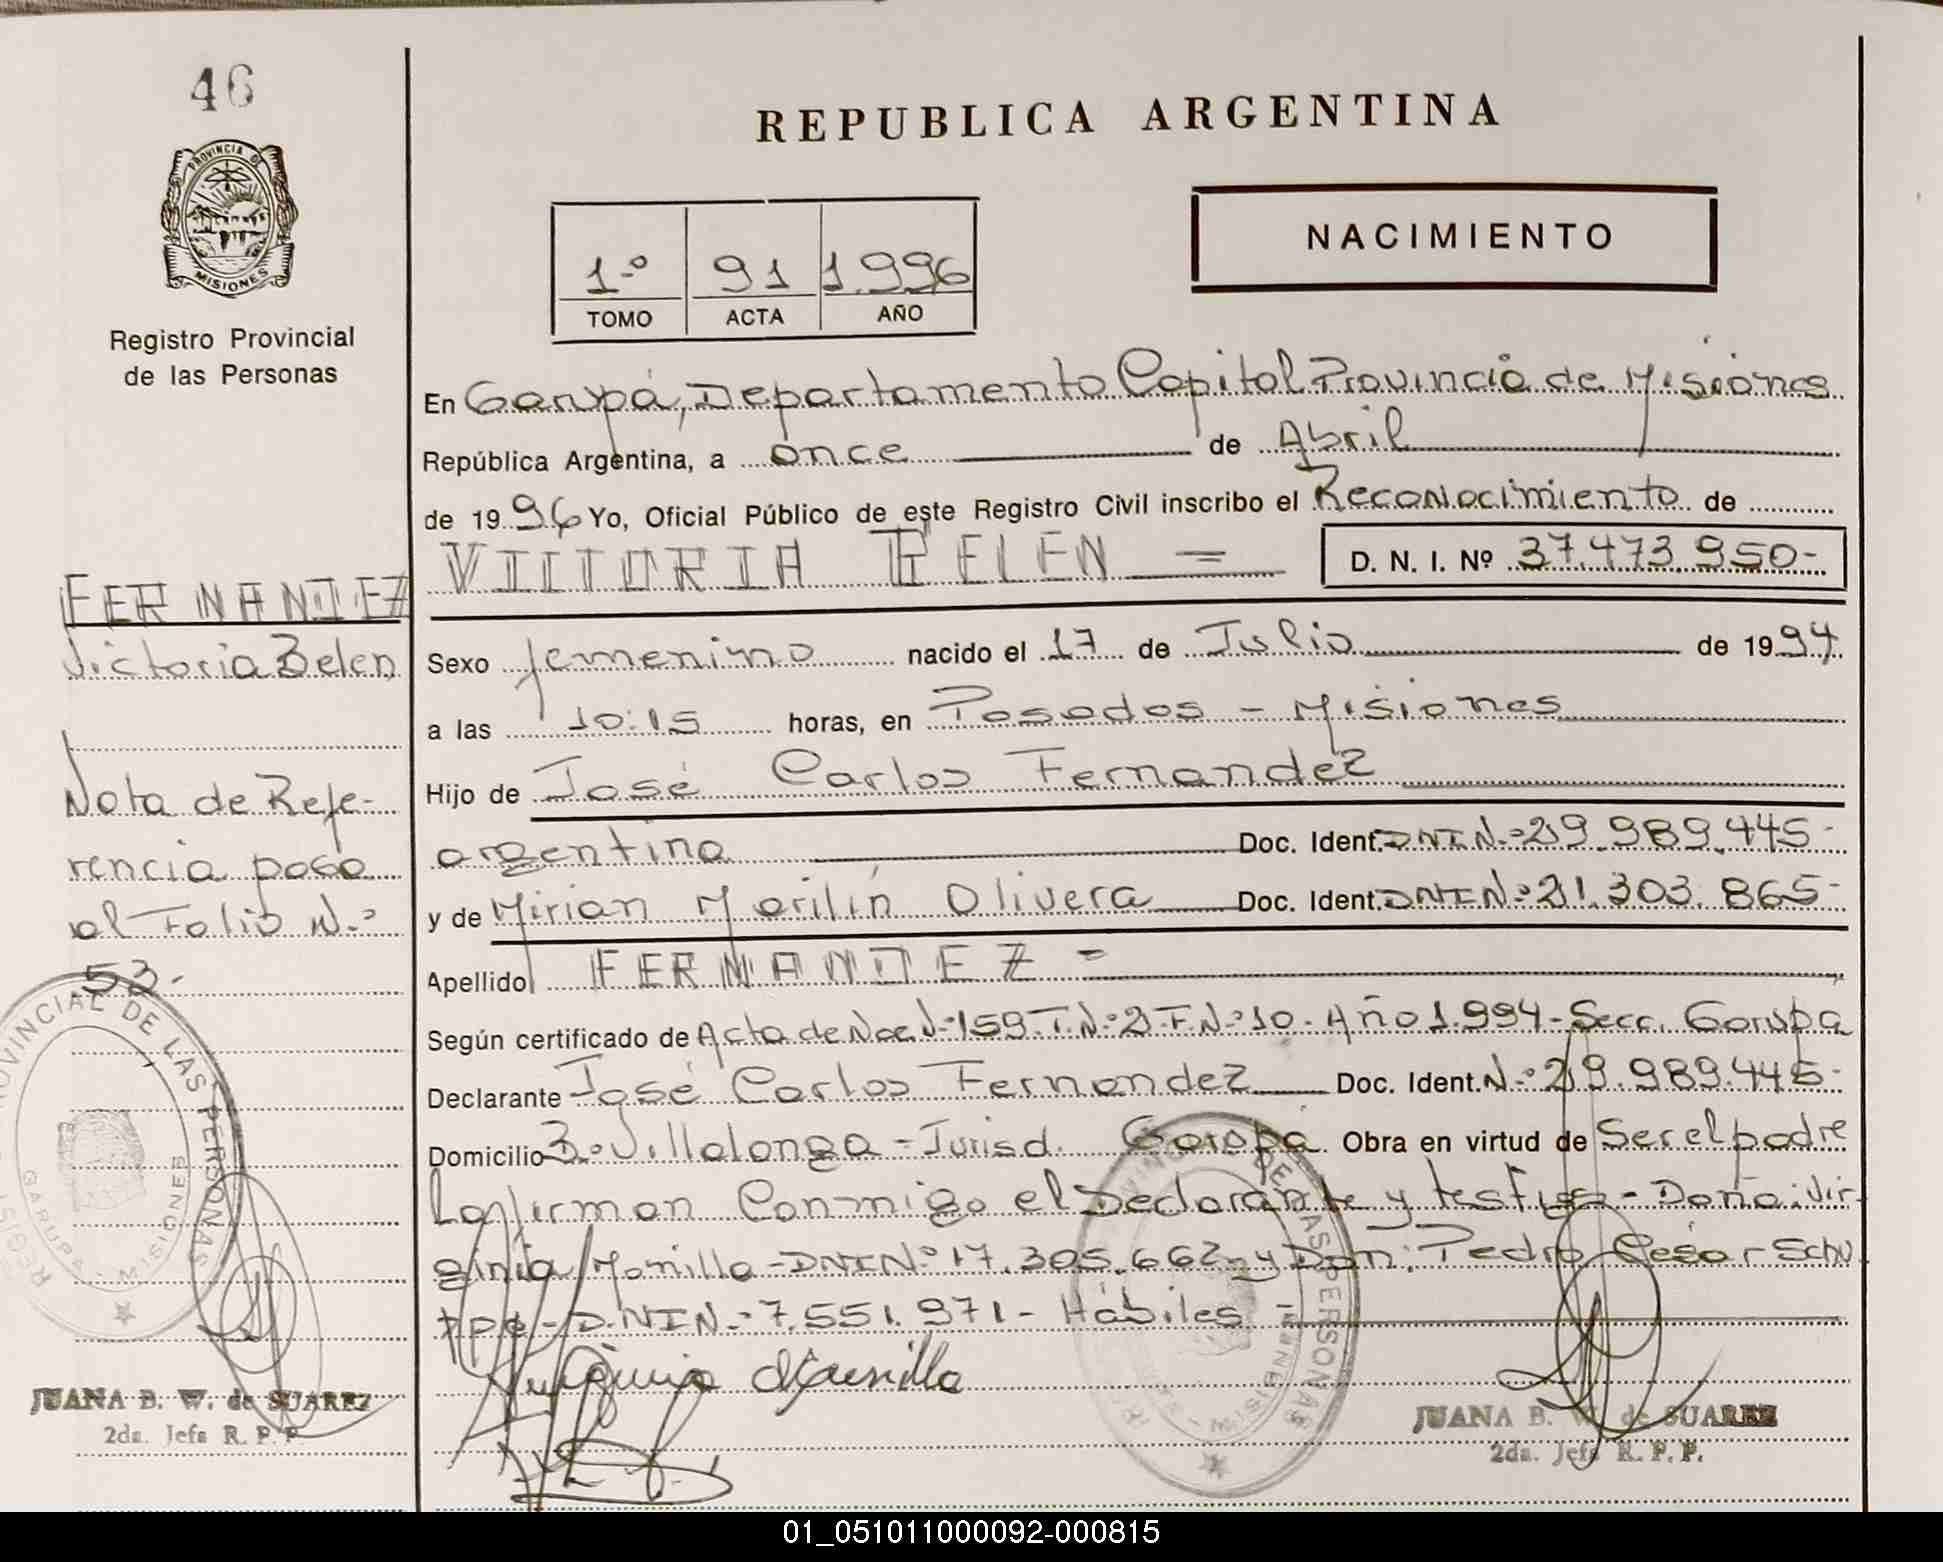 46
REPUBLICA ARGENTINA
PROVINCIA DE
MISIONES
NACIMIENTO
1º 91 1.996
TOMO ACTA AÑO
Registro Provincial
de las Personas
En Garupá, Departamento Capital Provincia de Misiones
República Argentina, a once de Abril
de 1996 Yo, Oficial Público de este Registro Civil inscribo el Reconocimiento de
VICTORIA BELEN = D. N. I. Nº 37.473.950-
FERNANDEZ
Victoria Belen
Sexo femenino nacido el 17 de Julio de 1994
a las 10:15 horas, en Posadas - Misiones
Hijo de José Carlos Fernandez
argentina Doc. Ident. DNIN.º 29.989.445-
y de Mirian Marilín Olivera Doc. Ident. DNIN.º 21.303.865-
Nota de Refe-
rencia pasa
al Folio N.º
53.-
Apellido FERNANDEZ =
Según certificado de Acta de Nac N.º 159-T.N.º 2-F.N.º 10- Año 1.994- Secc. Garupa
Declarante José Carlos Fernandez Doc. Ident. N.º 29.989.445-
Domicilio B.º Villalonga - Jurisd. Garupá. Obra en virtud de Ser el padre
La firman Conmigo el Declarante y testigos - Doña: Vir-
ginia Mansilla - DNIN.º 17.305.662 y Don: Pedro César Schu
- D.NIN.º 7.551.971 - Hábiles -
Mansilla
PROVINCIAL DE LAS PERSONAS
GARUPA - MISIONES
DE LAS PERSONAS
JUANA B. W. de SUAREZ
2da. Jefa R. P. P.
JUANA B. W. de SUAREZ
2da. Jefa R. P. P.
01_051011000092-000815